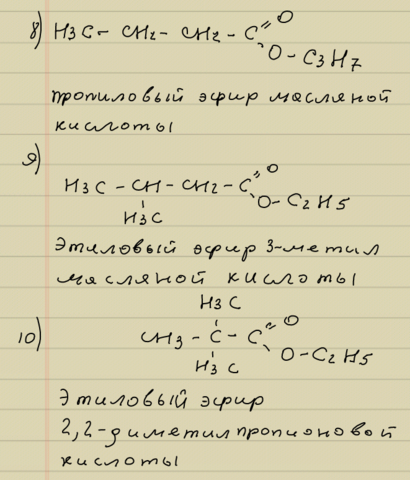 8) H3C – CH2 – CH2 – C = O
O – C3H7
пропиловый эфир масляной
кислоты
9)
H3C – CH – CH2 – C = O
H3C
O – C2H5
Этиловый эфир 3-метил
масляной кислоты
H3C
10) CH3 – C – C = O
H3C
O – C2H5
Этиловый эфир
2,2-диметилпропионовой
кислоты